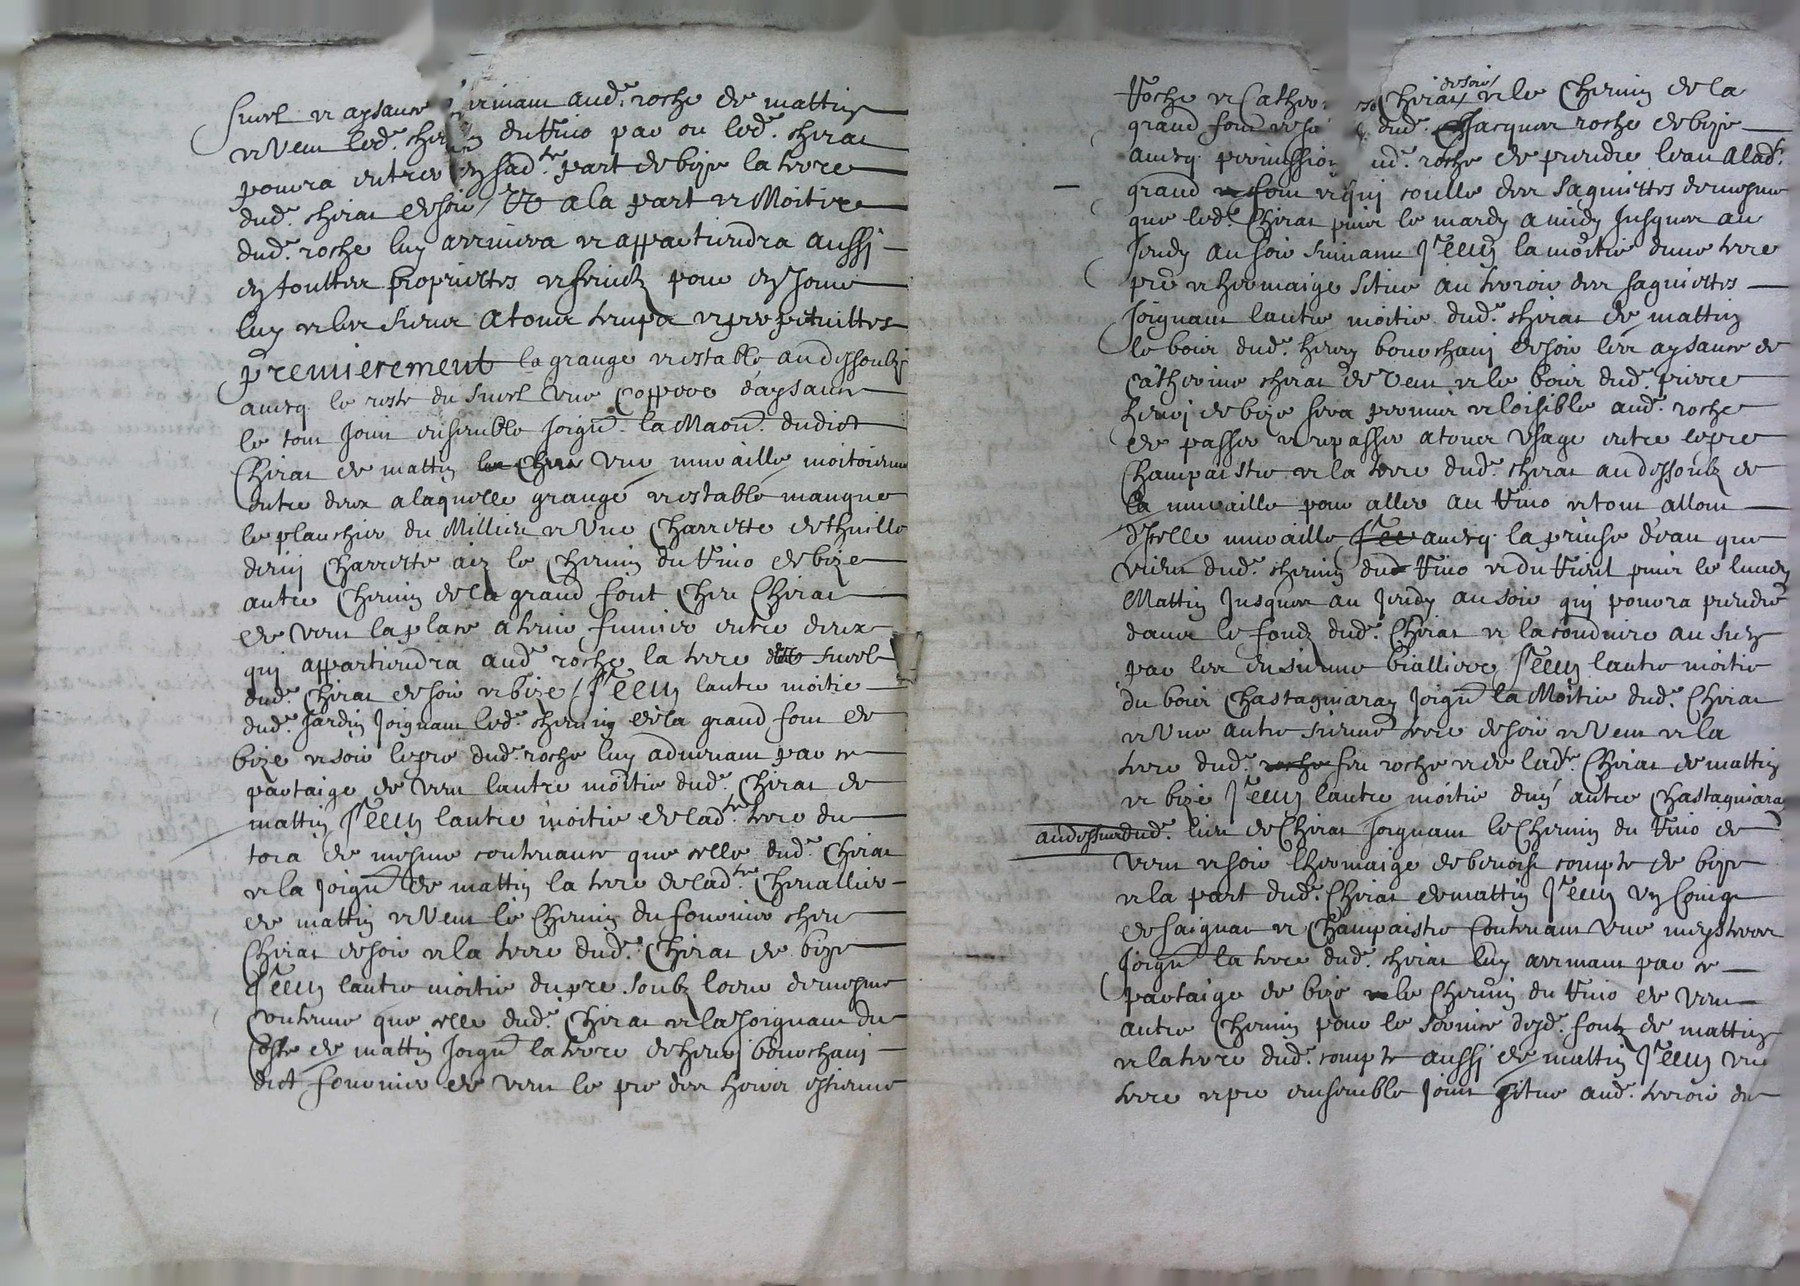 Suel et aysance aud.t roche de mattin
et vent led.t chemin du Vino par ou led.t chirat
pouvra entrer en lad.te part de bize la terre
dud.t chirat de soir / Et a la part et Moitie
dud.t roche luy arrivera et appartiendra aussi
en touttes proprietes et fruictz pour en Jouir
luy et les siens a tous temps et perpetuittes
Premierement la grange et estable au dessoubz
avecq le reste du suel une Coppee d'aysance
le tout Joint ensemble Joign.t la Maon. dudict
Chirat de mattin une muraille moitoienne
entre deux a laquelle grange et estable manque
le planchier du Millieu et Une Charrette de thuille
demy Charrette aiz le Chemin du Vino de bize
autre Chemin de la grand font Chez Chirat
de vent la place a tenir fumier entre deux
qui appartiendra aud.t roche la terre suel
dud.t Chirat de soir et bize / Item lautre moitie
dud.t Jardin Joignant led.t chemin de la grand font de
bize et soir le pre dud.t roche luy advenant par ce
partaige de vent lautre moitie dud.t Chirat de
mattin Item lautre moitie de lad.te terre du
tora de mesme contenance que celle dud.t Chirat
et la Joign.t de mattin la terre de lad.te Chevallier
de mattin et vent le Chemin du fournier chez
Chirat de soir et la terre dud.t Chirat de bize
Item lautre moitie du pre soubz loeuvre de mesme
contenue que celle dud.t Chirat et la Joignant du
Costé de mattin Joign.t la terre de henry bouchani
dict fournier de vent le pre des hoirs estienne
Roche et Catherine Chirat de soir et le Chemin de la
grand font et soir dud.t Jacques roche de bize
avecq permission aud.t roche de prendre leau a lad.te
grand font et qui coulle des Saguiettes de mesme
que led.t Chirat puis le mardy a midy Jusques au
Jeudy au soir suivant Item la moitie dune terre
pre et hermaige situe au terroir des saguiettes
Joignant lautre moitie dud.t chirat de mattin
le bois dud.t henry bouchani de soir les aysances de
Catherine chirat de vent et le bois dud.t pierre
henry de bize sera permis et loisible aud.t roche
de passer et repasser a tous Usage entre le pre
Champaistre et la terre dud.t chirat au dessoubz de
la muraille pour aller au Vino et tout allon
dIcelle muraille avecq la prinse d'eau que
vient dud.t chemin dud.t Vino et du puis le lundy
Mattin Jusques au Jeudy au soir qui pouvra prendre
dans le fondz dud.t Chirat et la conduire au sien
par les anciennes bialliere Item lautre moitie
du bois Chastagniaray Joign.t la Moitie dud.t Chirat
et Une autre sienne terre de soir et vent et la
terre dud.t feu roche et de lad.te Chirat de mattin
et bize Item lautre moitie dun autre Chastagniaray
au dessus dud.t lieu de Chirat Joignant le Chemin du Vino de
vent et soir lhermaige de benoist compte de bize
et la part dud.t Chirat de mattin Item Un Coing
de saignat et Champaistre Contenant Une meysterée
Joign.t la terre dud.t chirat luy arrivant par ce
partaige de bize le Chemin du Vino de vent
autre Chemin pour le service desd. fontz de mattin
et la terre dud.t compte aussi de mattin Item une
terre et pre ensemble Joint situe aud.t terroir du